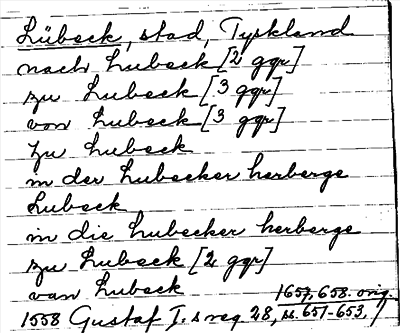 Lübeck, stad, Tyskland
nach Lubeck [2 ggr]
zu Lubeck [3 ggr]
von Lubeck [3 ggr]
zu Lubeck
in der Lubecker herberge
Lubeck
in die Lubecker herberge
zu Lubeck [2 ggr]
van Lubeck
1657, 658. orig.
1558 Gustaf I.s reg 28, ss. 651-653,